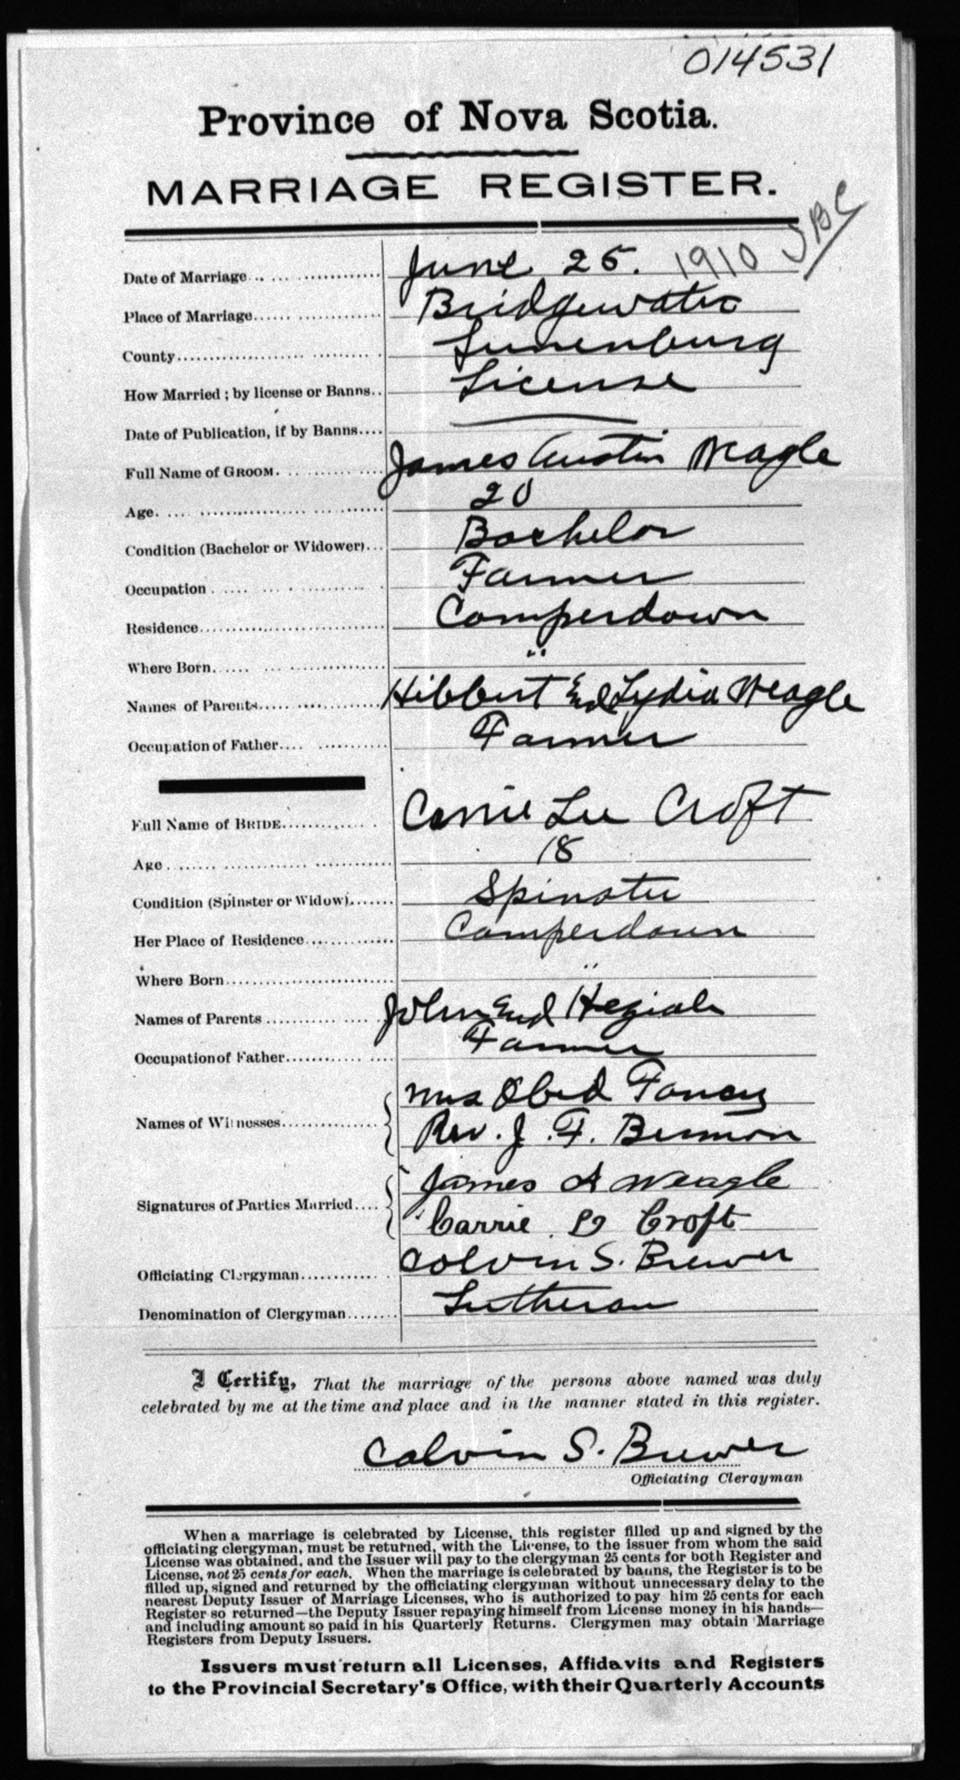 014531
Province of Nova Scotia.
MARRIAGE REGISTER.
Date of Marriage June 25. 1910
Place of Marriage Bridgewater
County Lunenburg
How Married; by license or Banns License
Date of Publication, if by Banns
Full Name of GROOM. James Austin Weagle
Age 20
Condition (Bachelor or Widower) Bachelor
Occupation Farmer
Residence Camperdown
Where Born "
Names of Parents Hibbert End Lydia Weagle
Occupation of Father Farmer
Full Name of BRIDE Carrie Lee Croft
Age 18
Condition (Spinster or Widow) Spinster
Her Place of Residence Camperdown
Where Born "
Names of Parents John End Heziah
Occupation of Father Farmer
Names of Witnesses Mrs Obed Fancy
Rev. J. F.
Signatures of Parties Married James A Weagle
Carrie L Croft
Officiating Clergyman Calvin S. Brewer
Denomination of Clergyman Lutheran
I Certify, That the marriage of the persons above named was duly
celebrated by me at the time and place and in the manner stated in this register.
Calvin S. Brewer
Officiating Clergyman
When a marriage is celebrated by License, this register filled up and signed by the
officiating clergyman, must be returned, with the License, to the issuer from whom the said
License was obtained, and the Issuer will pay to the clergyman 25 cents for both Register and
License, not 25 cents for each. When the marriage is celebrated by banns, the Register is to be
filled up, signed and returned by the officiating clergyman without unnecessary delay to the
nearest Deputy Issuer of Marriage Licenses, who is authorized to pay him 25 cents for each
Register so returned—the Deputy Issuer repaying himself from License money in his hands—
and including amount so paid in his Quarterly Returns. Clergymen may obtain Marriage
Registers from Deputy Issuers.
Issuers must return all Licenses, Affidavits and Registers
to the Provincial Secretary's Office, with their Quarterly Accounts